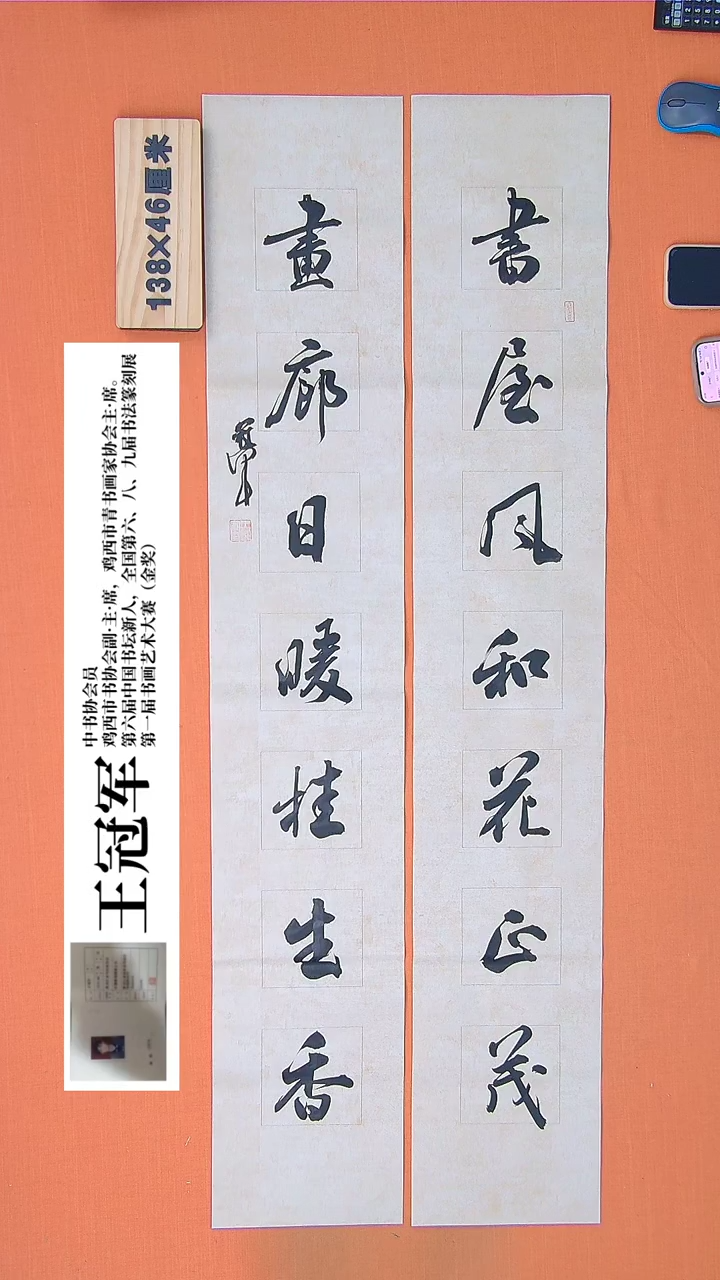 書屋风和花正茂
畫廊日暖桂生香
冠军
138×46厘米
王冠军
中书协会员
鸡西市书协会副·主·席，鸡西市青书画家协会主·席。
第六届中国书坛新人，全国第六、八、九届书法篆刻展
第一届书画艺术大赛（金奖）